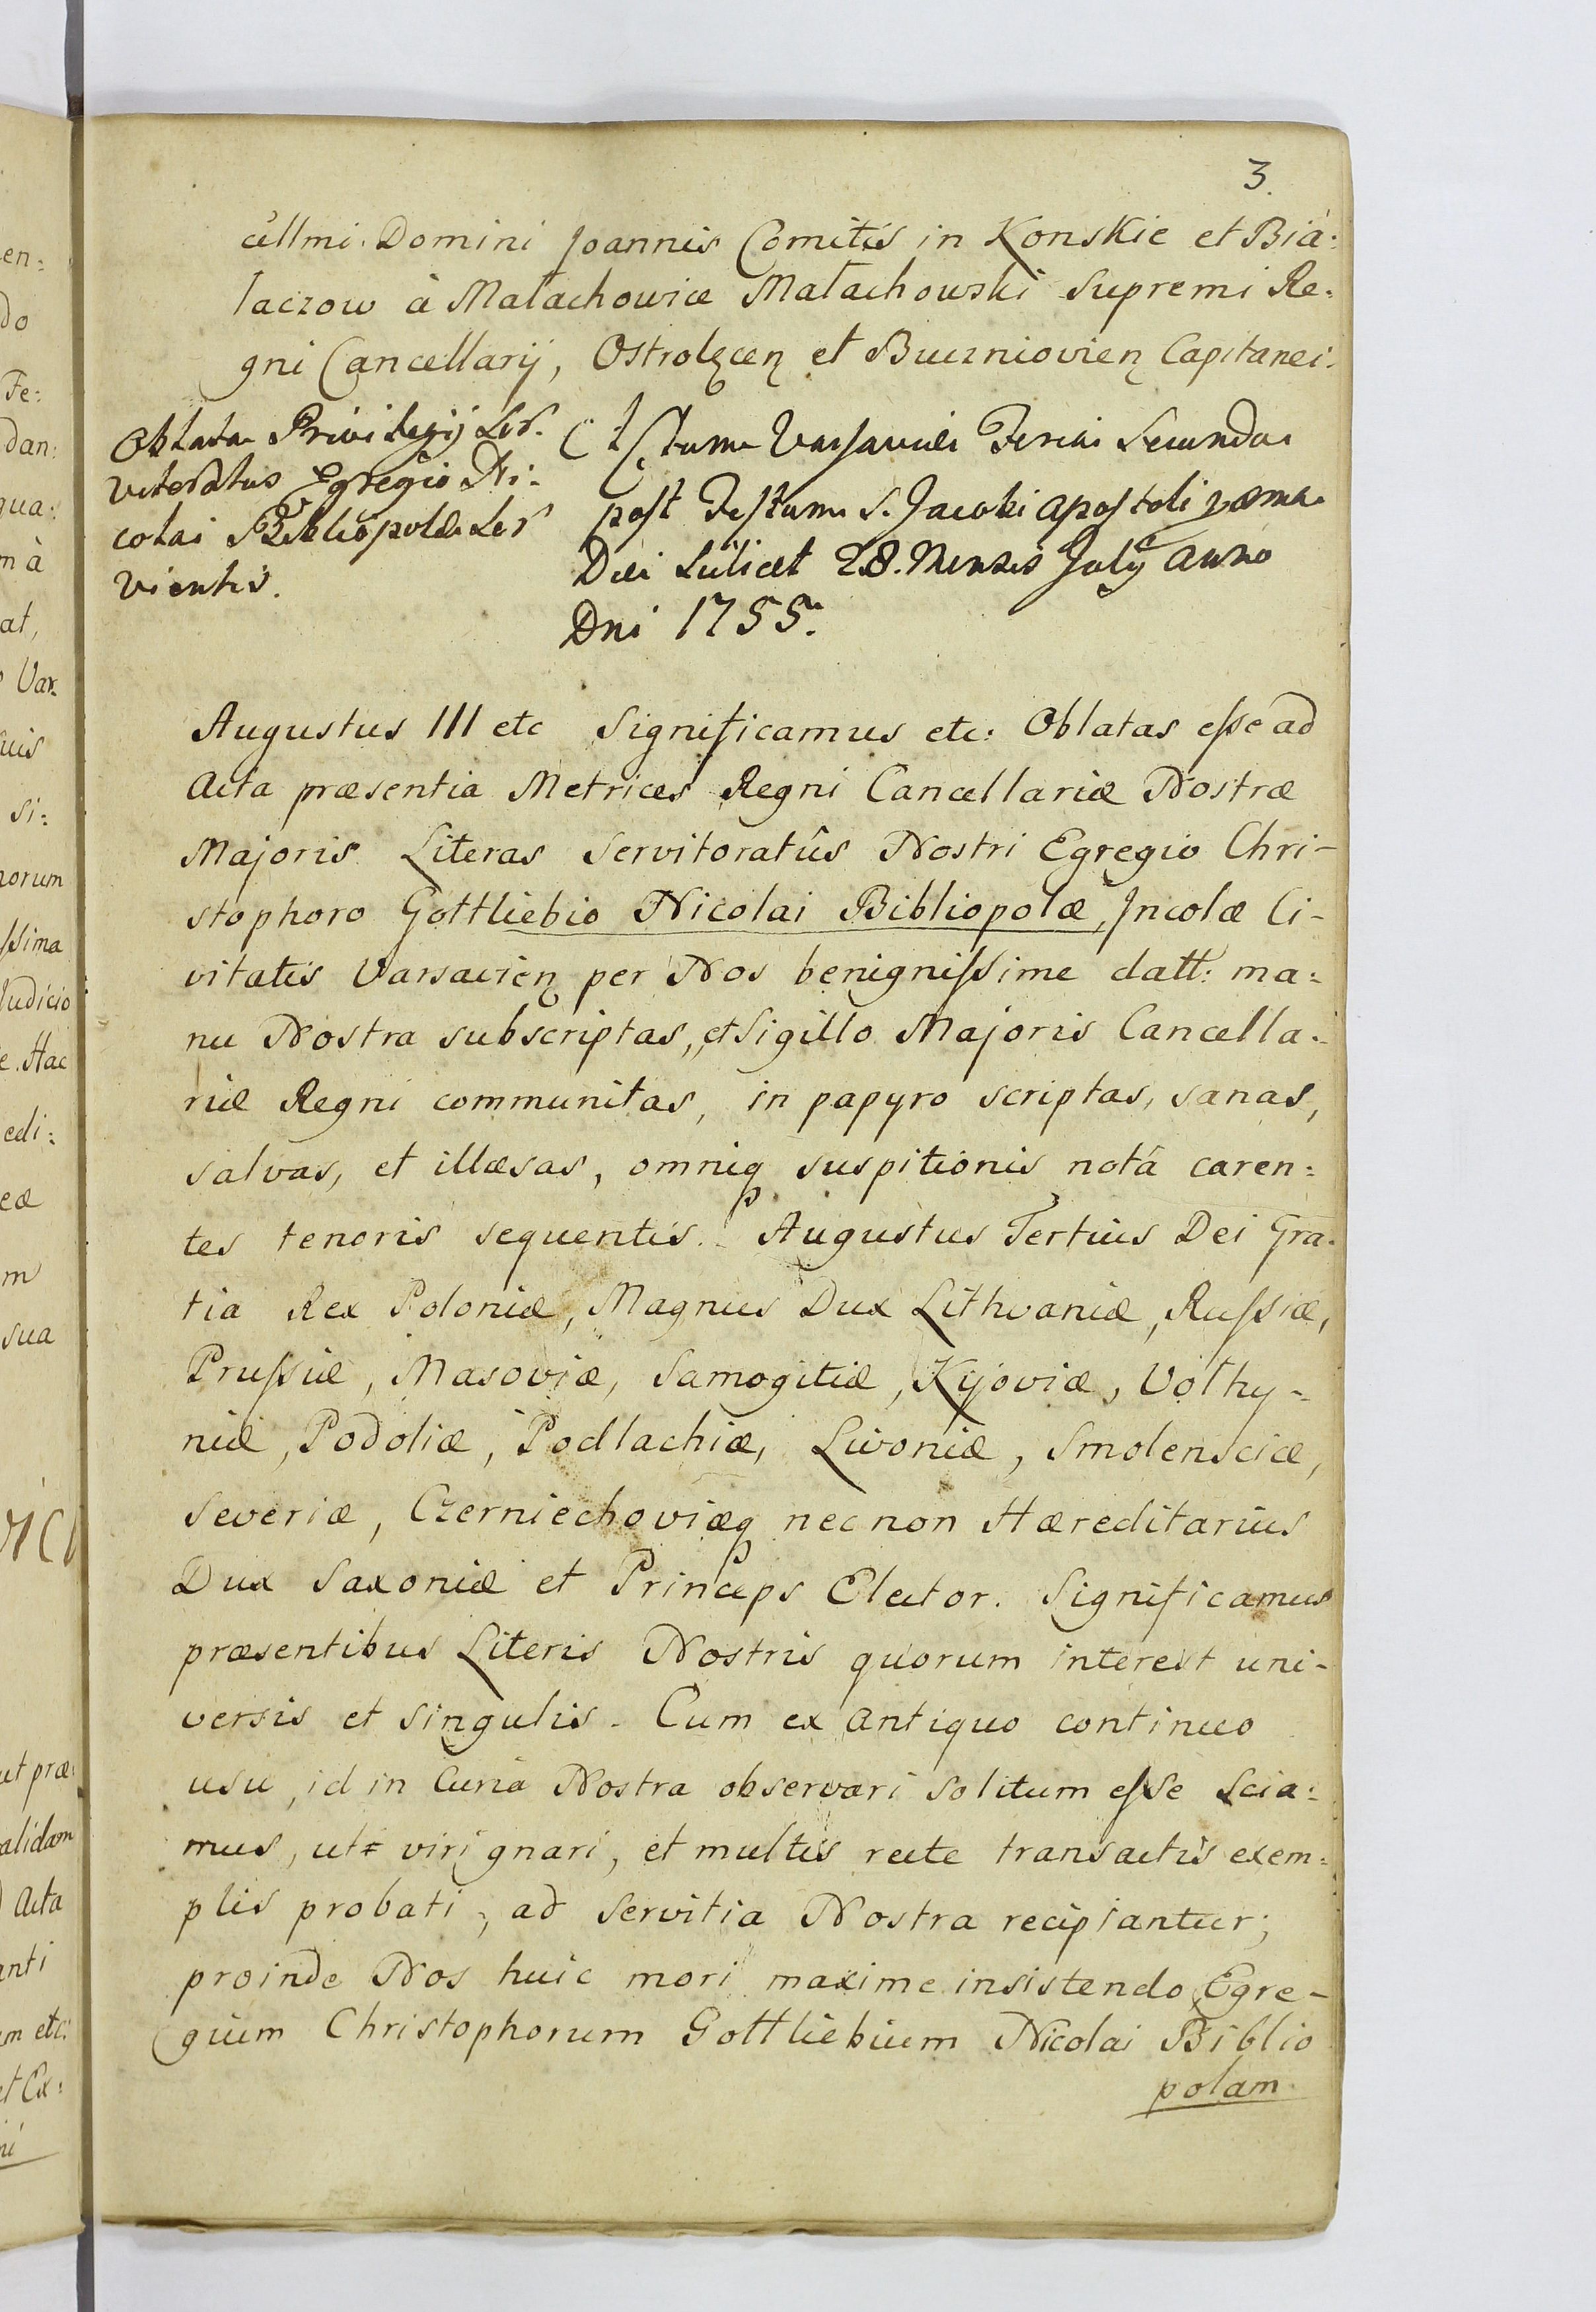 3.
cellmi Domini Joannis Comitis in Konskie et Bia:
łaczow à Małachowice Małachowski Supremi Re:
gni Cancellarij, Ostrolęcen et Buczniovien Capitanei.
Oblata Privilegij Ser:
vitoratus Egregio Ni:
colai Bibliopolæ Ser
vientis.
Actum Varsaviæ Feria Secunda
post Festum S. Jacobi Apostoli
Die scilicet 28. Mensis July Anno
Dni 1755.
Augustus III etc Significamus etc: Oblatas eſse ad
Acta præsentia Metrices Regni Cancellariæ Nostræ
Majoris Literas Servitoratûs Nostri Egregio Chri-
stophoro Gottliebio Nicolai Bibliopolæ, Incolæ Ci-
vitatis Varsavien per Nos benigniſsime datt: ma:
nu Nostra subscriptas, et Sigillo Majoris Cancella:
riæ Regni communitas, in papyro scriptas, sanas,
salvas, et illæsas, omniq suspitionis notâ caren:
tes tenoris sequentis. Augustus Tertius Dei Gra:
tia Rex Poloniæ, Magnus Dux Lithvaniæ, Ruſsiæ,
Pruſsiæ, Masoviæ, Samogitiæ, Kijoviæ, Volhy-
niæ, Podoliæ, Podlachiæ, Livoniæ, Smolensciæ,
Severiæ, Czerniechoviæq nec non Hæreditarius
Dux Saxoniæ et Princeps Elector. Significamus
præsentibus Literis Nostris quorum interest uni-
versis et singulis. Cum ex antiquo continuo
usu, id in Curia Nostra observari solitum eſse scia:
mus, ut viri gnari, et multis recte transactis exem:
plis probati, ad servitia Nostra recipiantur;
proinde Nos huic mori maxime insistendo, Egre-
gium Christophorum Gottliebium Nicolai Biblio
polam